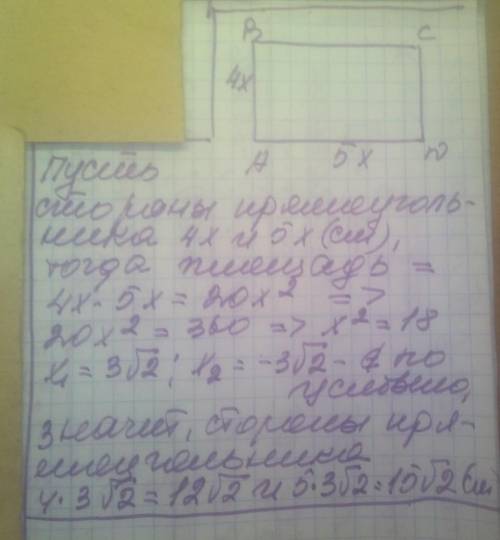 B C
4x
A 5x D
Пусть
стороны прямоуголь-
ника 4x и 5x (см),
тогда площадь =
4x · 5x = 20x² =>
20x² = 360 => x² = 18
x₁ = 3√2 ; x₂ = -3√2 - ∉ по
условию,
значит, стороны пря-
моугольника
4 · 3√2 = 12√2 и 5·3√2 = 15√2 см